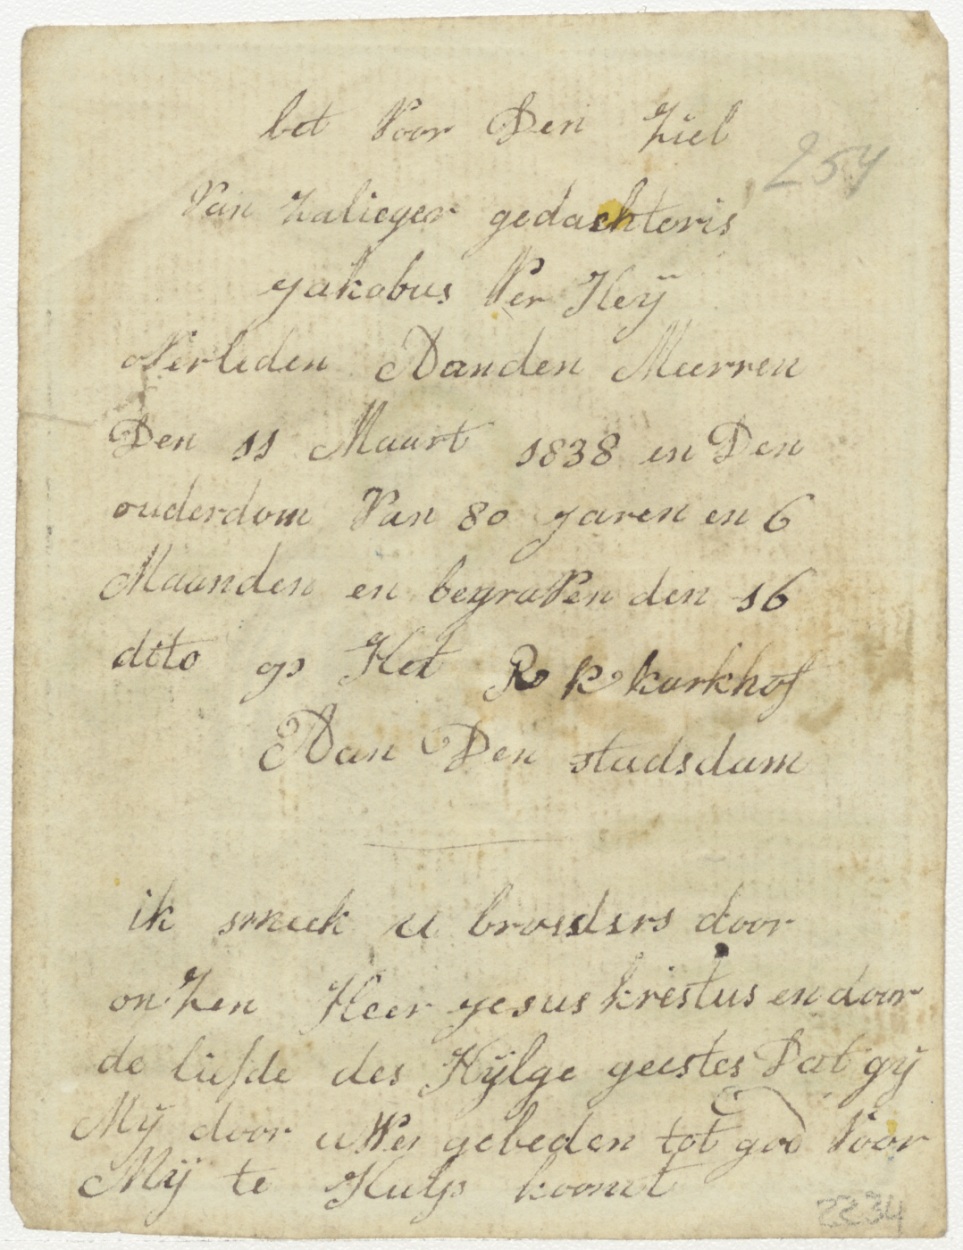 bet Voor Den Ziel
254
Van Zalieger gedachtenis
yakobus Ver Heÿ
oVerleden Aanden Meerren
Den 11 Maart 1838 en Den
ouderdom Van 80 yaren en 6
Maanden en begraVen den 16
dito op Het R K karkhof
Aan Den stadsdam
ik smeek u broeders door
onZen Heer yesus kristus en door
de liefde des Hÿlge geestes Dat gÿ
Mÿ door uWer gebeden tot god Voor
Mÿ te Hulp koomt
2234